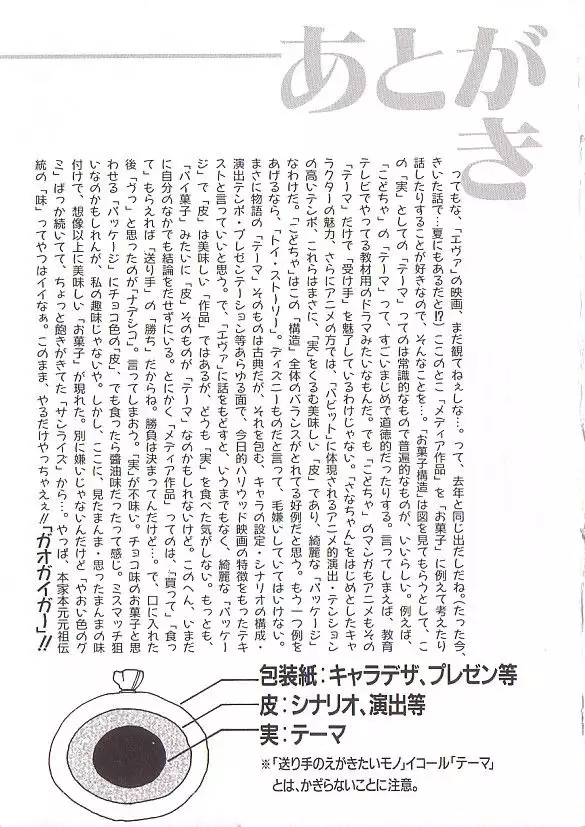 あとがき
ってもな、「エヴァ」の映画、まだ観てねぇしな…。って、去年と同じ出だしだね。(たった今、
きいた話で…夏にもあるだと!?) ここのとこ「メディア作品」を「お菓子」に例えて考えたり
話したりすることが好きなので、そんなことを…。「お菓子構造」は図を見てもらうとして、こ
の「実」としての「テーマ」ってのは常識的なもので普遍的なものが、いいらしい。例えば、
「こどちゃ」の「テーマ」って、すごいまじめで道徳的だったりする。言ってしまえば、教育
テレビでやってる教材用のドラマみたいなもんだ。でも「こどちゃ」のマンガもアニメもその
「テーマ」だけで「受け手」を魅了しているわけじゃない。「さなちゃん」をはじめとしたキャ
ラクターの魅力、さらにアニメの方では、「バビット」に体現されるアニメ的演出・テンション
の高いテンポ、これらはまさに、「実」をくるむ美味しい「皮」であり、綺麗な「パッケージ」
なわけだ。「こどちゃ」はこの「構造」全体のバランスがとれてる好例だと思う。もう一つ例を
あげるなら、「トイ・ストーリー」。ディズニーものだと言って、毛嫌いしていてはいけない。
まさに物語の「テーマ」そのものは古典だが、それを包む、キャラの設定・シナリオの構成・
演出テンポ・プレゼンテーション等あらゆる面で、今日的ハリウッド映画の特徴をもったテキ
ストと言っていいと思う。で、「エヴァ」に話をもどすと、いうまでもなく、綺麗な「パッケー
ジ」で「皮」は美味しい「作品」ではあるが、どうも「実」を食べた気がしない。もっとも、
「パイ菓子」みたいに「皮」そのものが「テーマ」なのかもしれないけど。このへん、いまだ
に自分のなかでも結論をだせずにいる。とにかく「メディア作品」ってのは、「買って」「食っ
て」もらえれば「送り手」の「勝ち」だからね。勝負は決まってんだけど…。で、口に入れた
後「ヴっ」と思ったのが「ナデシコ」。言ってしまおう。「実」が不味い。チョコ味のお菓子と思
わせる「パッケージ」にチョコ色の「皮」、でも食ったら醤油味だったって感じ。ミスマッチ狙
いなのかもしれんが、私の趣味じゃないや。しかし、ここに、見たまんま・思ったまんまの味
付けで、想像以上に美味しい「お菓子」が現れた。別に嫌いじゃないんだけど「やおい色のグ
ミ」ばっか続いてて、ちょっと飽きがきてた「サンライズ」から…。やっぱ、本家本元元祖伝
統の「味」ってやつはイイなぁ。このまま、やるだけやっちゃえぇ!!「ガオガイガー」!!
包装紙：キャラデザ、プレゼン等
皮：シナリオ、演出等
実：テーマ
※「送り手のえがきたいモノ」イコール「テーマ」
とは、かぎらないことに注意。